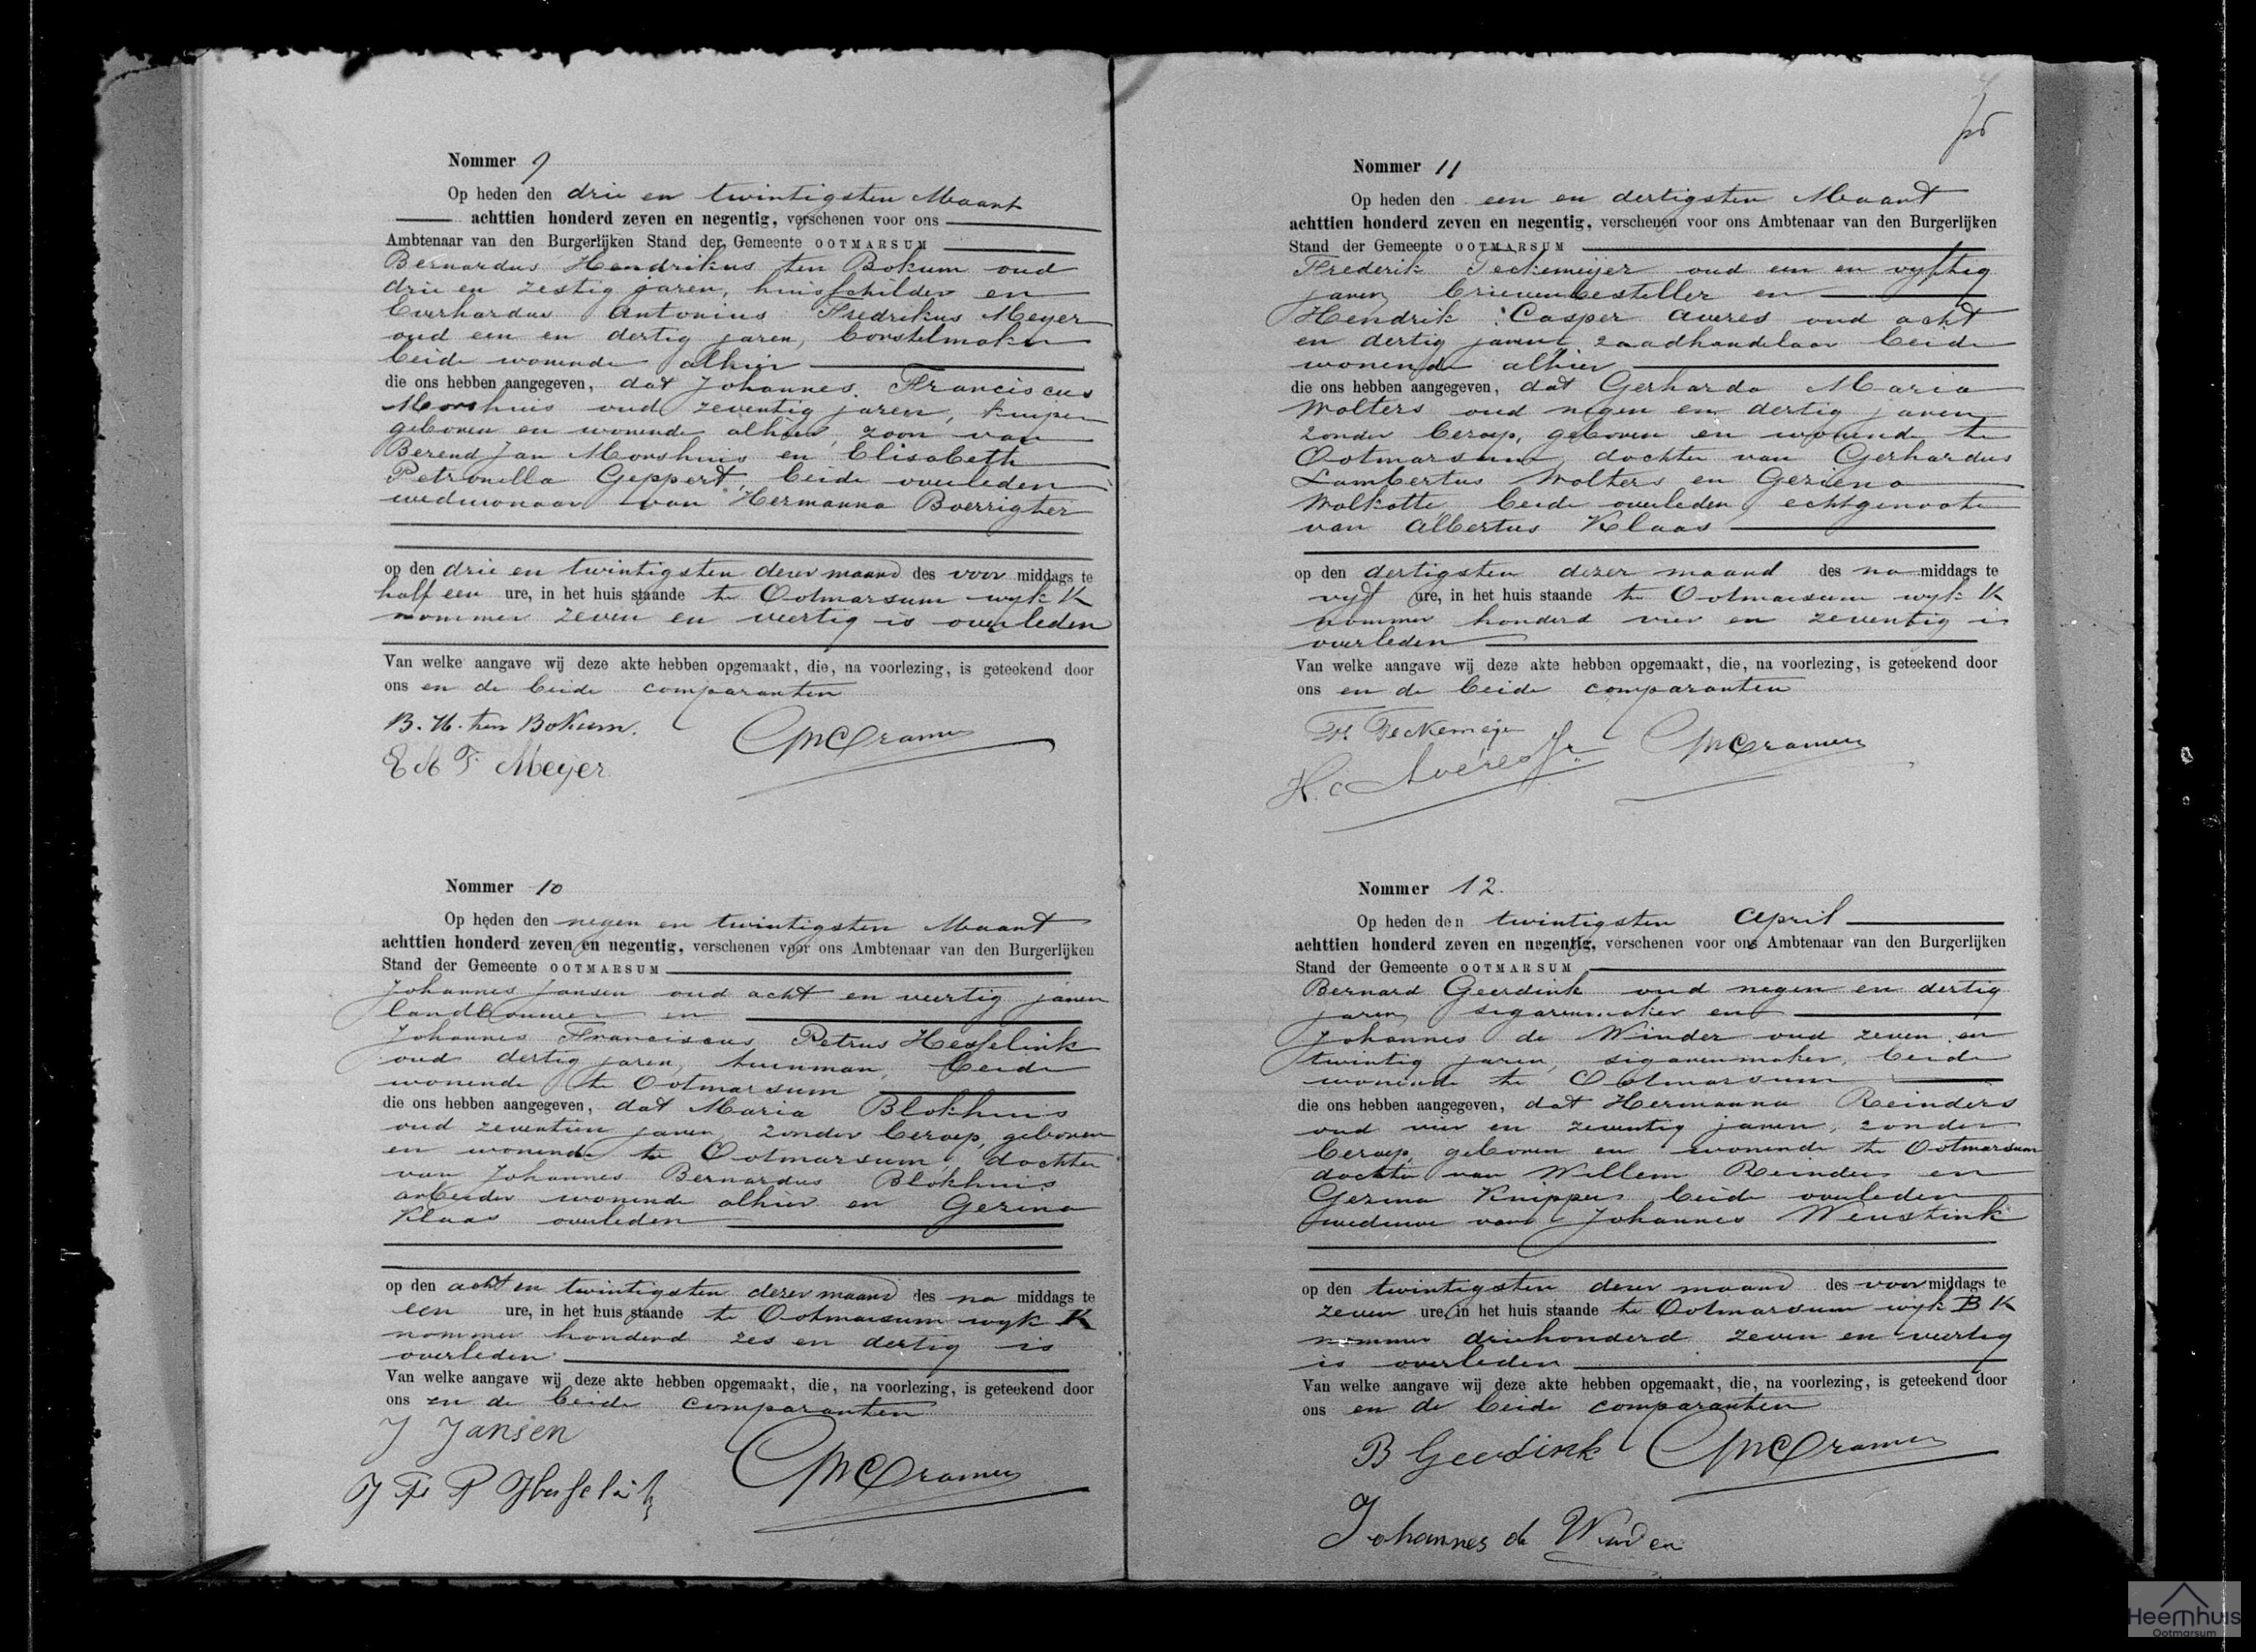 Nommer 9
Op heden den drie en twintigsten Maart
achttien honderd zeven en negentig, verschenen voor ons
Ambtenaar van den Burgerlijken Stand der Gemeente OOTMARSUM
Bernardus Hendrikus ten Bokum oud
drie en zestig jaren, huisschilder en
Everhardus Antonius Fredrikus Meyer
oud een en dertig jaren, borstelmaker
beide wonende alhier
die ons hebben aangegeven, dat Johannes Franciscus
Morshuis oud zeventig jaren, kuiper
geboren en wonende alhier, zoon van
Berend Jan Morshuis en Elisabeth
Petronella Geppert, beide overleden
weduwnaar van Hermanna Boerrigter
op den drie en twintigsten dezer maand des voor middags te
half een ure, in het huis staande te Ootmarsum wijk K
nommer zeven en veertig is overleden
Van welke aangave wij deze akte hebben opgemaakt, die, na voorlezing, is geteekend door
ons en de beide comparanten
B. H. ten Bokum.
E A F Meyer
Cramer
Nommer 10
Op heden den negen en twintigsten Maart
achttien honderd zeven en negentig, verschenen voor ons Ambtenaar van den Burgerlijken
Stand der Gemeente OOTMARSUM
Johannes Jansen oud acht en veertig jaren
landbouwer en
Johannes Franciscus Petrus Hesselink
oud dertig jaren, tuinman, beide
wonende te Ootmarsum
die ons hebben aangegeven, dat Maria Blokhuis
oud zeventien jaren, zonder beroep, geboren
en wonende te Ootmarsum, dochter
van Johannes Bernardus Blokhuis
arbeider wonende alhier en Gezina
Klaas overleden
op den acht en twintigsten dezer maand des na middags te
een ure, in het huis staande te Ootmarsum wijk K
nommer honderd zes en dertig is
overleden
Van welke aangave wij deze akte hebben opgemaakt, die, na voorlezing, is geteekend door
ons en de beide comparanten
J Jansen
J F P Hesselink
Cramer
Nommer 11
Op heden den een en dertigsten Maart
achttien honderd zeven en negentig, verschenen voor ons Ambtenaar van den Burgerlijken
Stand der Gemeente OOTMARSUM
Frederik Teckemeijer oud een en vijftig
jaren, brievenbesteller en
Hendrik Casper Averes oud acht
en dertig jaren, zaadhandelaar beide
wonende alhier
die ons hebben aangegeven, dat Gerharda Maria
Wolters oud negen en dertig jaren
zonder beroep, geboren en wonende te
Ootmarsum, dochter van Gerhardus
Lambertus Wolters en Geziena
Wolkotte, beide overleden, echtgenoote
van Albertus Klaas
op den dertigsten dezer maand des na middags te
vijf ure, in het huis staande te Ootmarsum wijk K
nommer honderd vier en zeventig is
overleden
Van welke aangave wij deze akte hebben opgemaakt, die, na voorlezing, is geteekend door
ons en de beide comparanten
Fr. Teckemeijer
H. C Averes Jr.
Cramer
Nommer 12.
Op heden den twintigsten April
achttien honderd zeven en negentig, verschenen voor ons Ambtenaar van den Burgerlijken
Stand der Gemeente OOTMARSUM
Bernard Geerdink oud negen en dertig
jaren, sigarenmaker en
Johannes de Winder oud zeven en
twintig jaren, sigarenmaker, beide
wonende te Ootmarsum
die ons hebben aangegeven, dat Hermanna Reinders
oud vier en zeventig jaren, zonder
beroep, geboren en wonende te Ootmarsum
dochter van Willem Reinders en
Gezina Knippers beide overleden
weduwe van Johannes Weustink
op den twintigsten dezer maand des voor middags te
zeven ure, in het huis staande te Ootmarsum wijk B K
nommer driehonderd zeven en veertig
is overleden
Van welke aangave wij deze akte hebben opgemaakt, die, na voorlezing, is geteekend door
ons en de beide comparanten
B Geerdink
Cramer
Johannes de Winder
Heemhuis
Ootmarsum